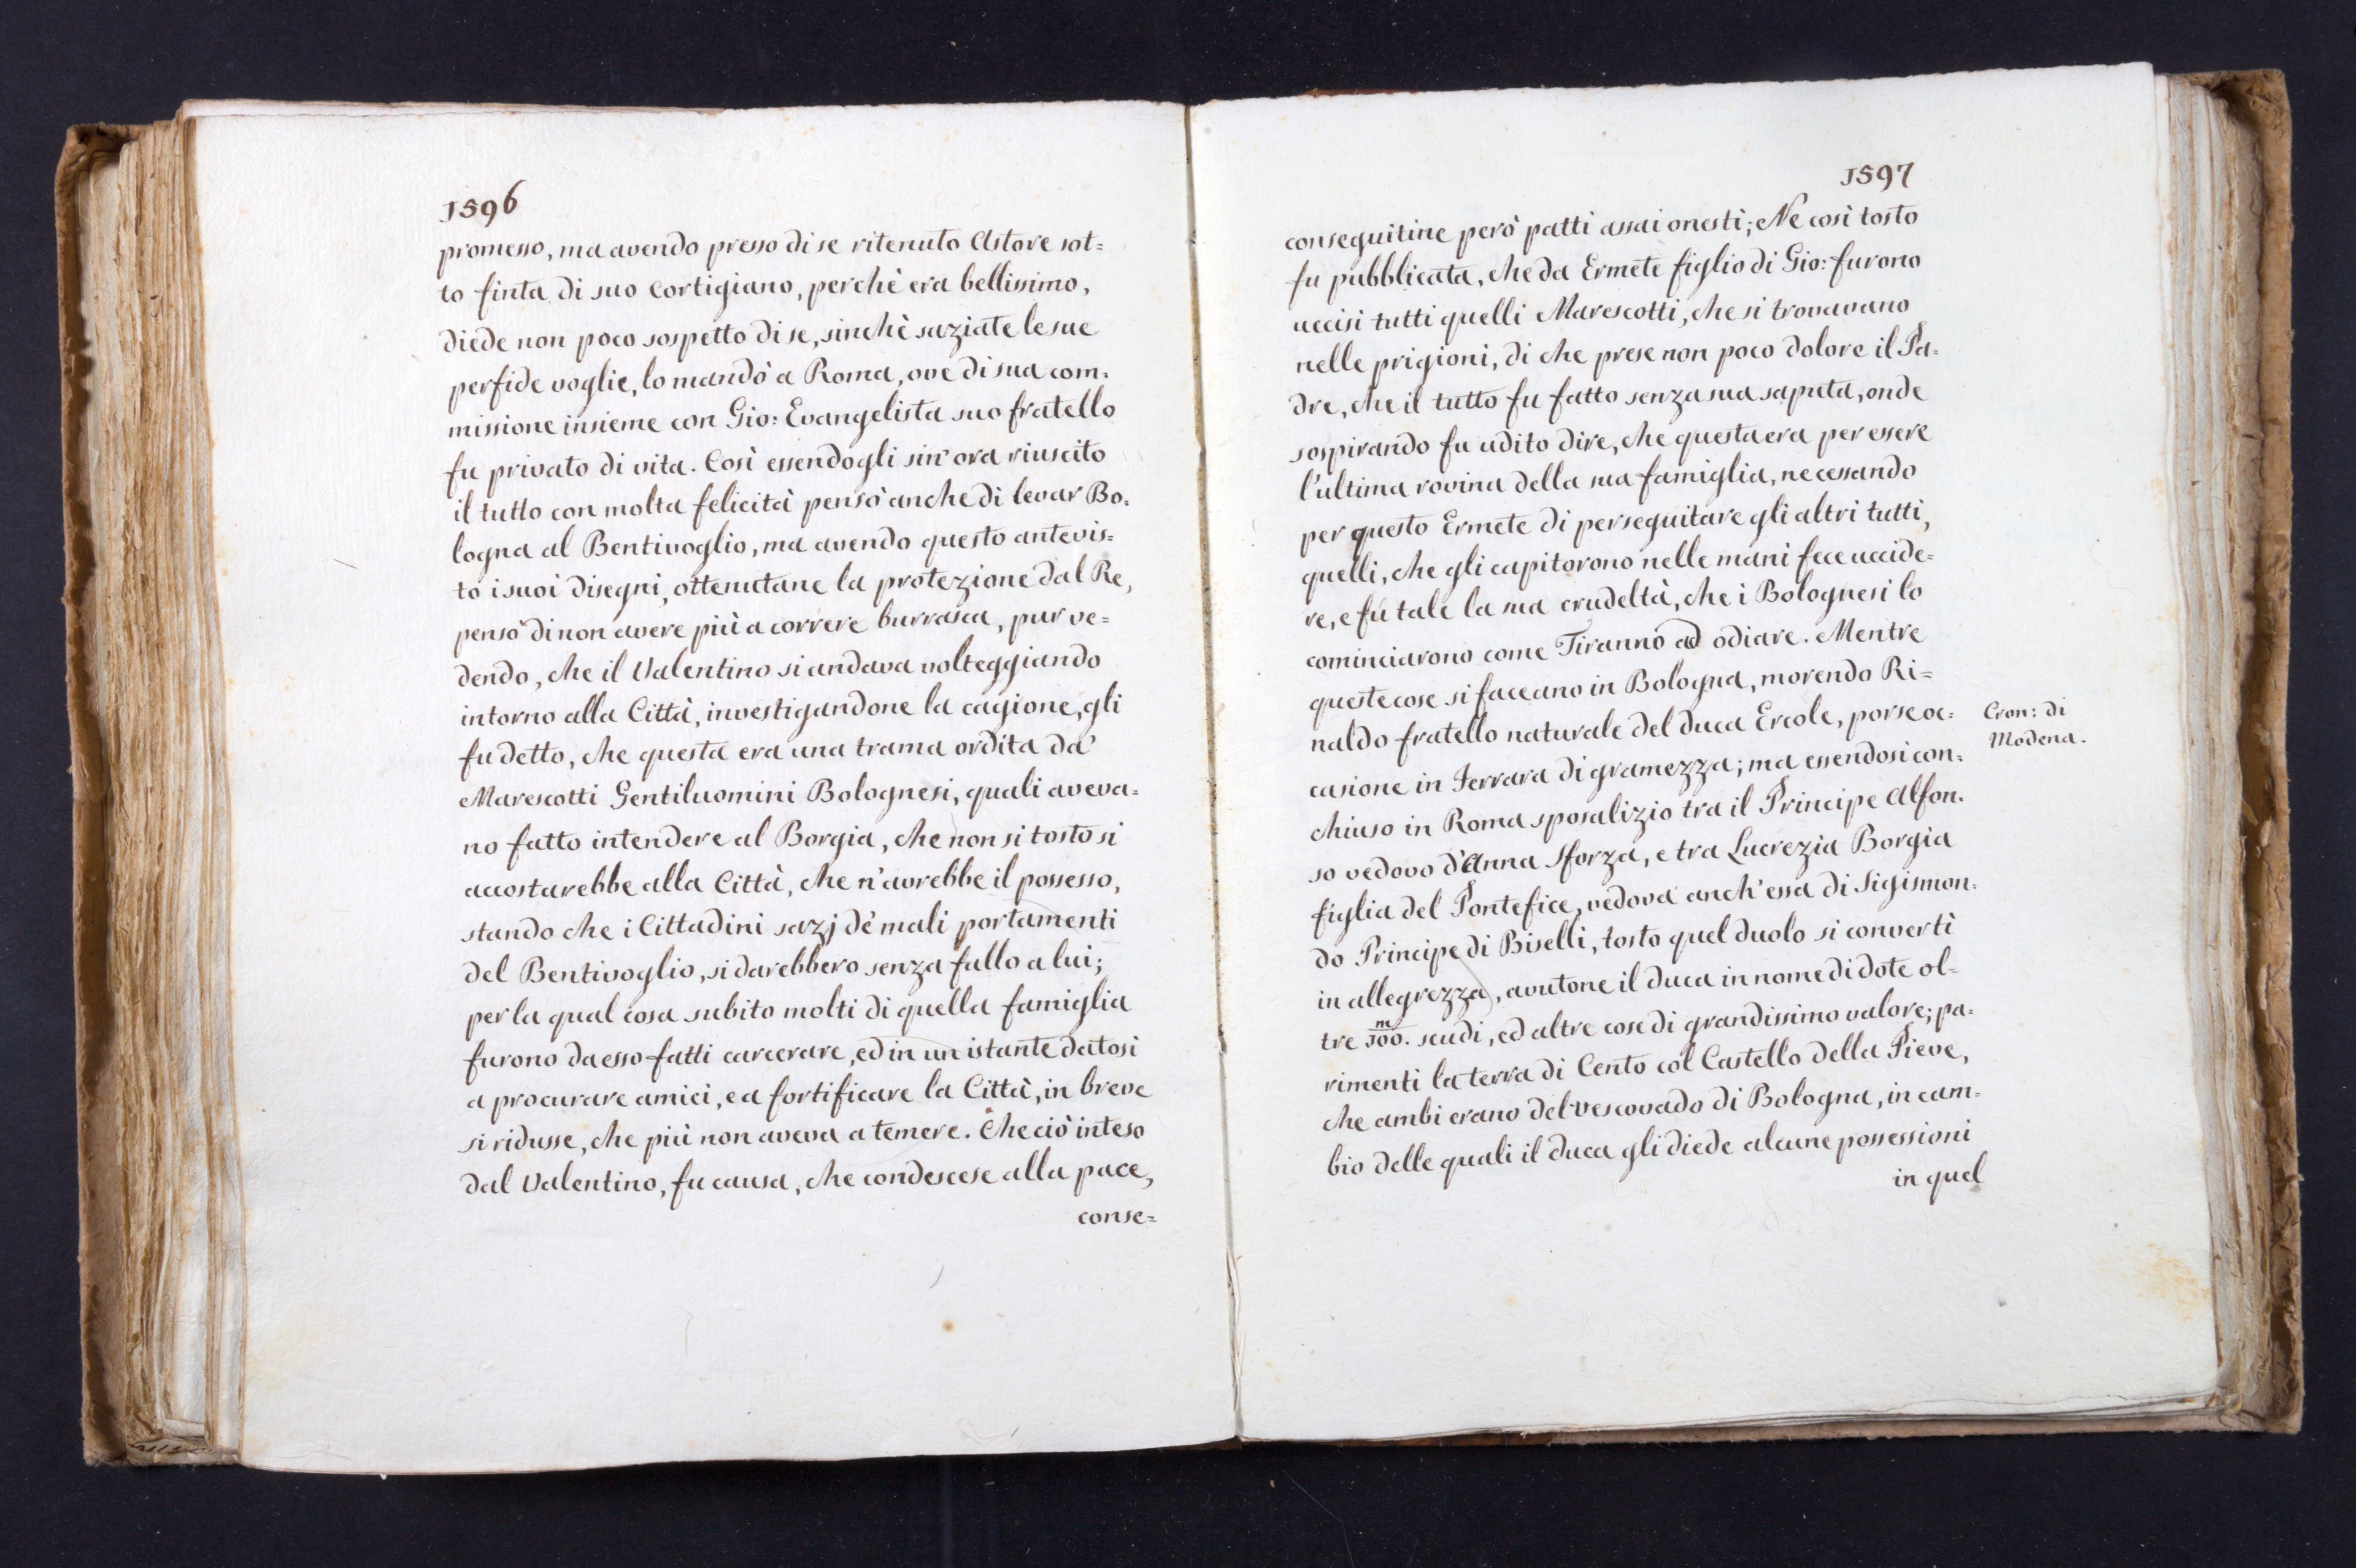 1596
promesso, ma avendo presso di se ritenuto Astore sot=
to finta di suo cortigiano, perchè era bellissimo,
diede non poco sospetto di se, sinchè saziate le sue
perfide voglie, lo mandò a Roma, ove di sua com=
missione insieme con Gio: Evangelista suo fratello
fu privato di vita. Così essendogli sin' ora riuscito
il tutto con molta felicità pensò anche di levar Bo=
logna al Bentivoglio, ma avendo questo antevis=
to i suoi disegni, ottenutane la protezione dal Re,
pensò di non avere più a correre burrasca, pur ve=
dendo, che il Valentino si andava volteggiando
intorno alla Città, investigandone la cagione, gli
fu detto, che questa era una trama ordita da'
Marescotti Gentiluomini Bolognesi, quali aveva=
no fatto intendere al Borgia, che non si tosto si
accostarebbe alla Città, che n'avrebbe il possesso,
stando che i Cittadini sazj de' mali portamenti
del Bentivoglio, si darebbero senza fallo a lui;
per la qual cosa subito molti di quella famiglia
furono da esso fatti carcerare, ed in un istante datosi
a procurare amici, e a fortificare la Città, in breve
si ridusse, che più non aveva a temere. Che ciò inteso
dal Valentino, fu causa, che condescese alla pace,
conse=
1597
conseguitine però patti assai onesti; Ne così tosto
fu pubblicata, che da Ermete figlio di Gio: furono
uccisi tutti quelli Marescotti, che si trovavano
nelle prigioni, di che prese non poco dolore il Pa=
dre, che il tutto fu fatto senza sua saputa, onde
sospirando fu udito dire, che questa era per essere
l'ultima rovina della sua famiglia, ne cessando
per questo Ermete di perseguitare gli altri tutti,
quelli, che gli capitorono nelle mani fece uccide=
re, e fu tale la sua crudeltà, che i Bolognesi lo
cominciarono come Tiranno ad odiare. Mentre
queste cose si faceano in Bologna, morendo Ri=
naldo fratello naturale del duca Ercole, porse oc=
casione in Ferrara di gramezza; ma essendosi con=
chiuso in Roma sposalizio tra il Principe Alfon=
so vedovo d'Anna Sforza, e tra Lucrezia Borgia
figlia del Pontefice, vedova anch'essa di Sigismon=
do Principe di Biselli, tosto quel duolo si convertì
in allegrezza, avutone il duca in nome di dote ol=
tre 100.m scudi, ed altre cose di grandissimo valore; pa=
rimenti la terra di Cento col Castello della Pieve,
che ambi erano del Vescovado di Bologna, in cam=
bio delle quali il duca gli diede alcune possessioni
in quel
Cron: di
Modena.